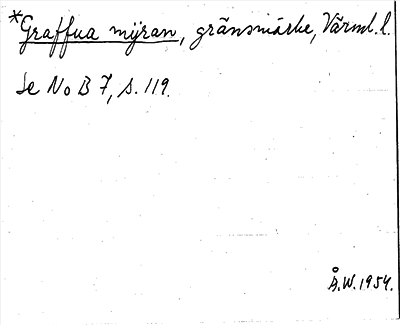 *Graffua mÿran, gränsmärke, Värml. l.
Se No B 7, s. 119.
Å.W. 1954.